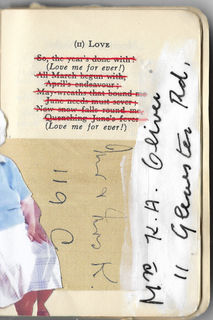 (II) LOVE
So, the year's done with!
(Love me for ever!)
All March begun with,
April's endeavour;
May-wreaths that bound me
June needs must sever;
Now snow falls round me,
Quenching June's fever—
(Love me for ever!)
Mrs K. A. Oliver
11 Gloucester Rd,
119